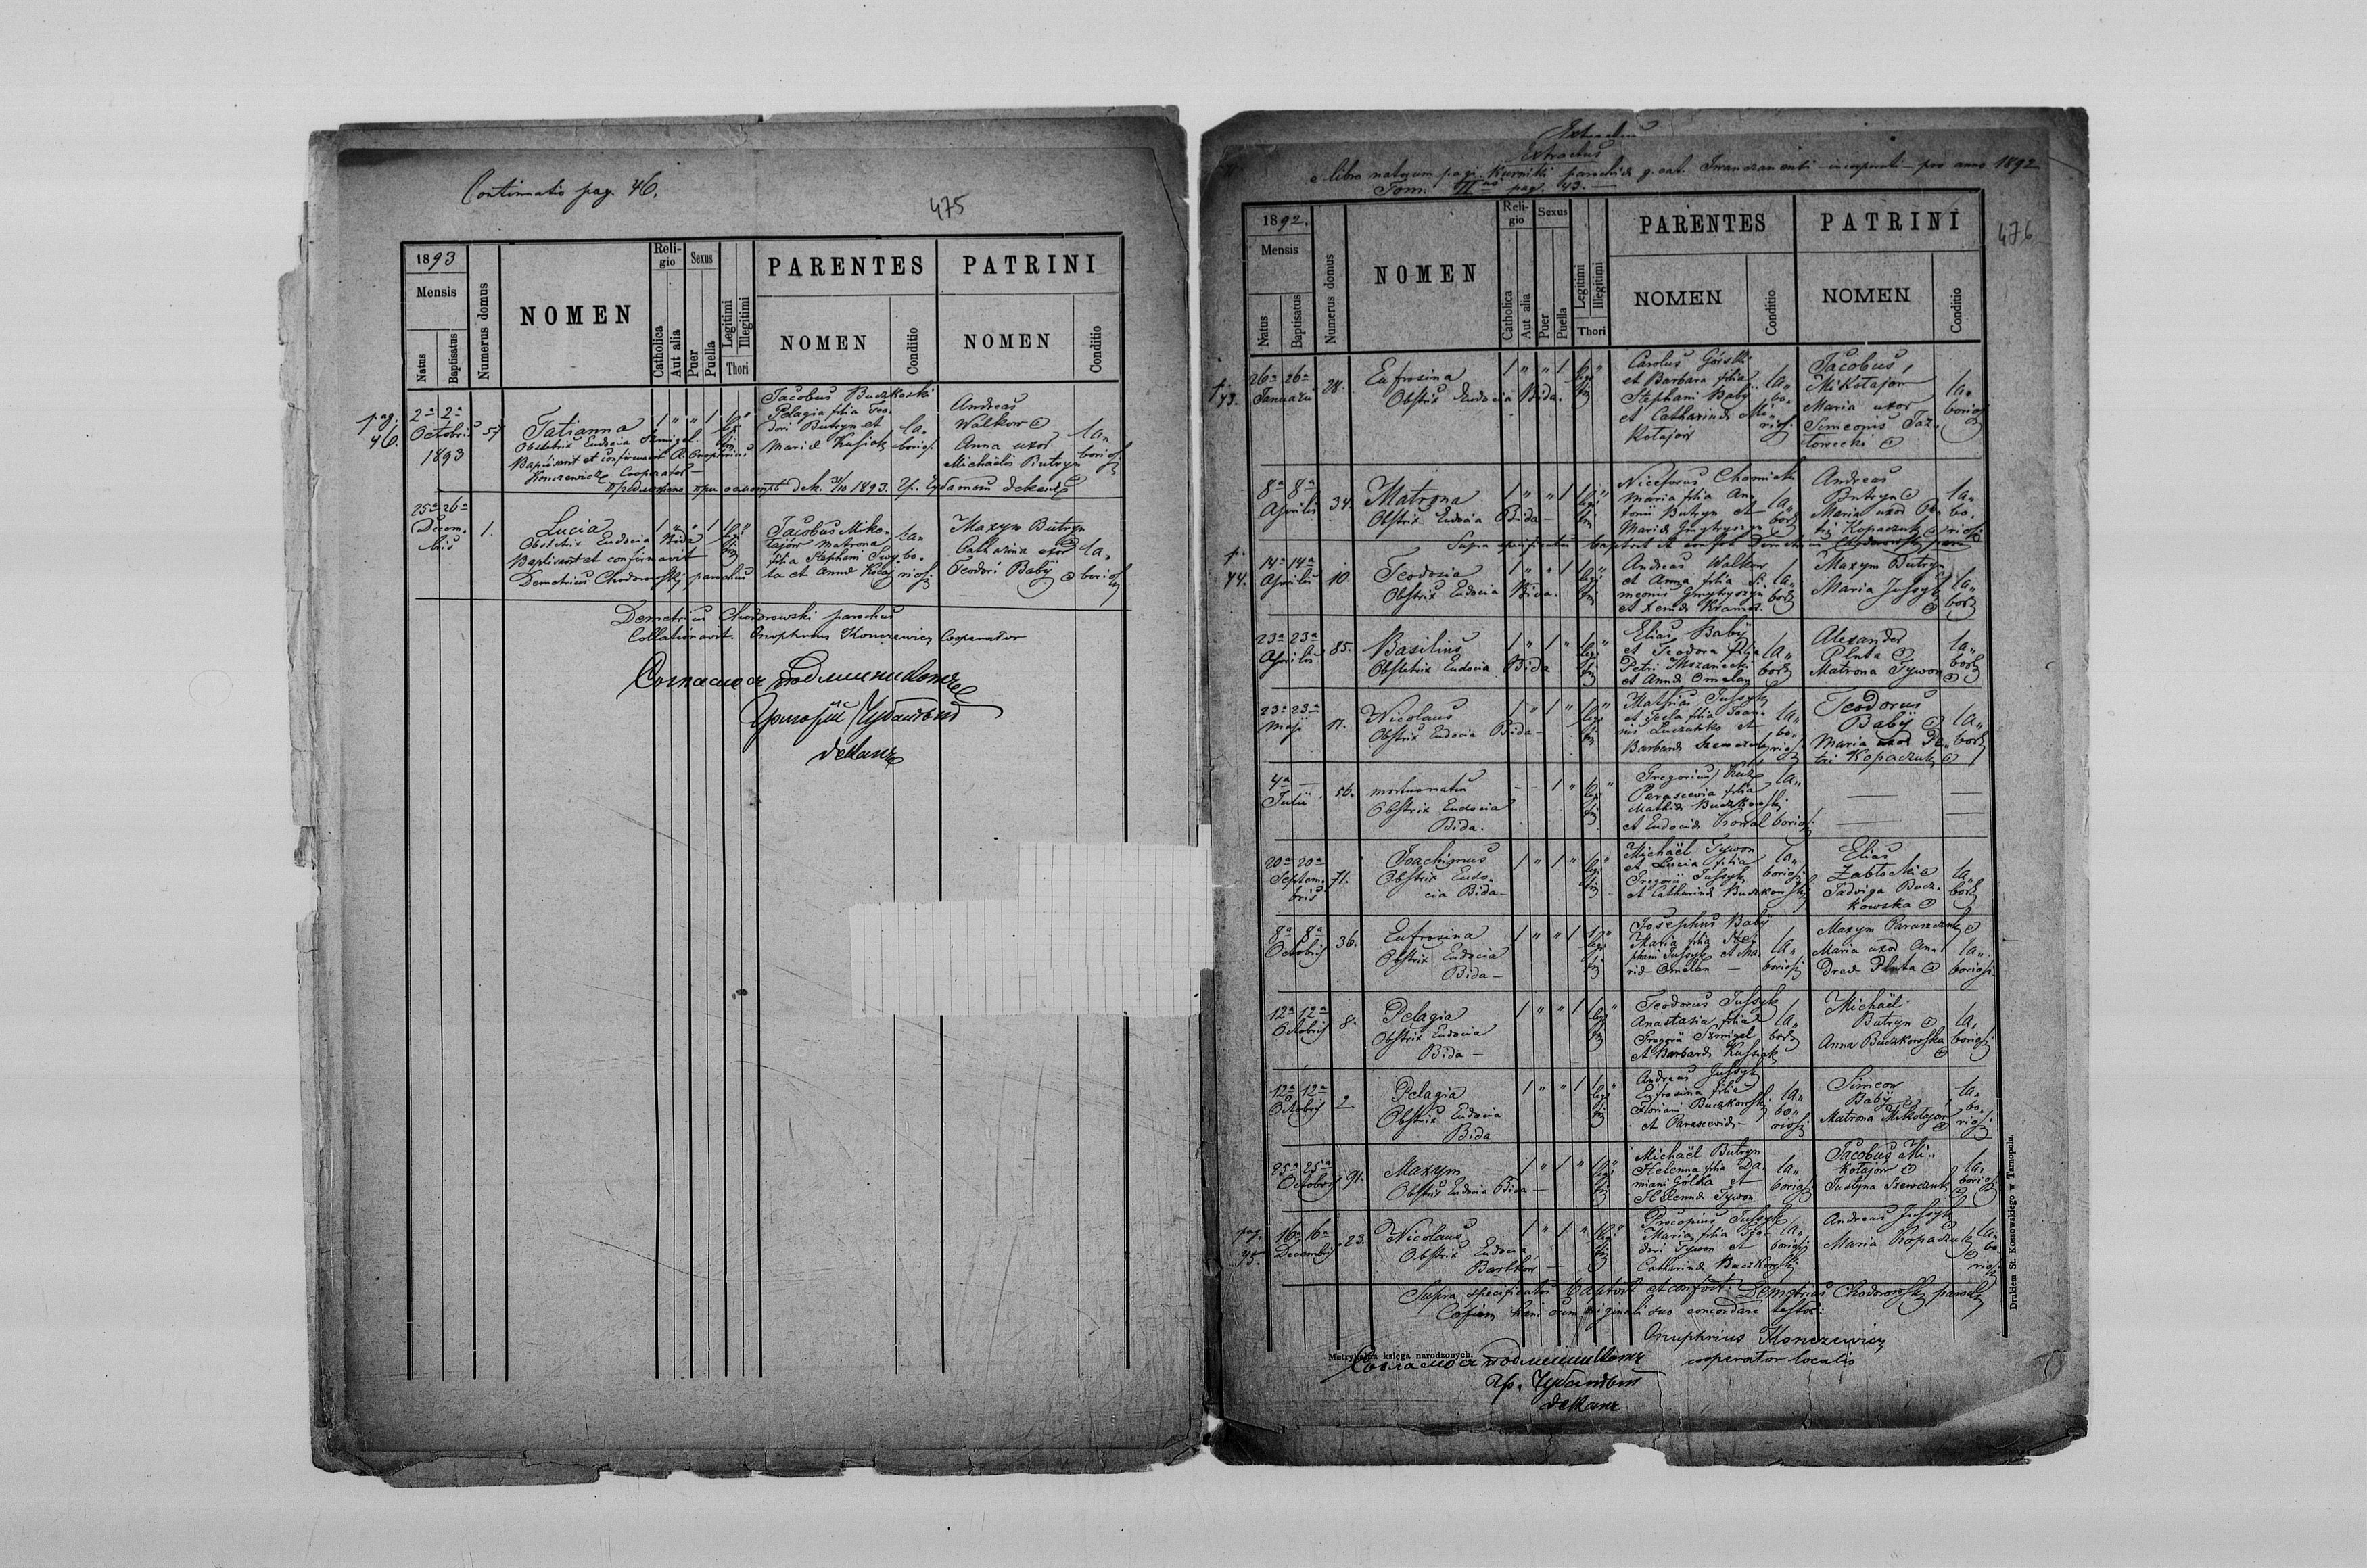 Continuatio pag. 46.
475
1893
Mensis
Natus
Baptisatus
Numerus domus
NOMEN
Religio
Catholica
Aut alia
Sexus
Puer
Puella
Legitimi
Illegitimi
Thori
PARENTES
NOMEN
Conditio
PATRINI
NOMEN
Conditio
pag. 46.
2a 2a
Octobris
1893
57
Tatianna
Obstetrix Eudocia Szmigel
Baptisavit et confirmavit R. Onuphrius
Konczewicz Cooperator
1 " " 1
Jacobus Buczkowski
Pelagia filia Teo-
dori Butryn et
Mariæ Kusiak
la-
boriosi
Andreas
Walkow
Anna uxor
Michaëlis Butryn
la-
boriosi
25a 26a
Decem-
bris
1.
Lucia
Obstetrix Eudocia Bida
Baptisavit et confirmavit
Demetrius Chodorowskyj, parochus
1 " " 1
Jacobus Miko-
łajow Matrona
filia Stephani
et Annæ
la-
bo-
riosi
Maxym Butryn
Catharina uxor
Teodori Babÿ
la-
boriosi
Demetrius Chodorowski parochus
Collationavit. Onuphrius Konczewicz Cooperator
декан
Extractus
e libro natorum pagi Kurniki parochiæ g. cat. Iwanczan onti incorporati pro anno 1892
Tom. II pag. 43.
476
1892.
Mensis
Natus
Baptisatus
Numerus domus
NOMEN
Religio
Catholica
Aut alia
Sexus
Puer
Puella
Legitimi
Illegitimi
Thori
PARENTES
NOMEN
Conditio
PATRINI
NOMEN
Conditio
p. 43.
26a 26a
Januarii
28.
Eufrosina
Obstrix Eudocia Bida.
1 " " 1
Carolus Górski
et Barbara filia
Stephani Babÿ
et Catharinæ Mi-
kołajow
la-
bo-
riosi
Jacobus
Mikołajow
Maria uxor
Simeonis Jaz-
łowiecki
la-
boriosi
8a 8a
Aprilis
34.
Matrona
Obstrix Eudocia Bida
1 " " 1
Niceforus Chomicki
Maria filia An-
tonii Butryn et
Mariæ Gmytryszyn
Andreas
Butryn
Maria uxor Pe-
tri Kopaczuk
la-
bo-
riosi
Supra specificatos baptisvit et confvit Demetrius Chodorowskyj
p. 44.
14a 14a
Aprilis
10.
Teodozia
Obstrix Eudocia Bida.
1 " " 1
Andreas Walkow
et Anna filia Si-
meonis Gmytryszyn
Maxym Butryn
Maria Jussyk
23a 23a
Aprilis
85.
Basilius
Obstetrix Eudocia Bida
1 " 1 "
Elias Babÿ
et Teodora filia
Petri Mszaniecki
et Annæ Omelan
Alexander
Pluta
Matrona Tywon
23a 23a
Maji
17.
Nicolaus
Obstrix Eudocia Bida
1 " 1 "
Mathias Jussyk
et Tecla filia Joan-
nis et
Barbaræ Szewczuk
Teodorus
Babÿ
Maria uxor Pe-
tri Kopaczuk
4a —
Julii
56.
mortuonatus
Obstrix Eudocia
Bida.
- - 1 "
Gregorius
Parascevia filia
Mathiæ Buczkowski
et Eudociæ Kowal
la-
boriosi
20a 20a
Septem-
bris
71.
Joachimus
Obstrix Eudo-
cia Bida
1 " 1 "
Michaël Tywon
et Lucia filia
Gregorii Jussyk
et Catharinæ Buczkowskij
la-
boriosi
Elias
Zabłocki
Jadwiga Bucz-
kowska
8a 8a
Octobris
36.
Eufrosina
Obstrix Eudocia
Bida
1 " " 1
Josephus Babÿ
Maria filia Ste-
phani Jussyk et Ma-
riæ Omelan
la-
boriosi
Maxym Paraszczuk
Maria uxor An-
dreæ Pluta
la-
boriosi
12a 12a
Octobris
8.
Pelagia
Obstrix Eudocia
Bida
1 " " 1
Teodorus Jussyk
Anastasia filia
Gregorii Szmigel
et Barbaræ Kussyak
Michaël
Butryn
Anna Buczkowska
la-
boriosi
12a 12a
Octobris
2
Pelagia
Obstrix Eudocia
Bida
1 " " 1
Andreas Jussyk
Eufrosina filia
Floriani Buczkowskij
et Parasceviæ
la-
bo-
riosi
Simeon
Babÿ
Matrona Mikołajow
la-
bo-
riosi
25a 25a
Octobris
91.
Maxym
Obstrix Eudocia Bida
1 " 1 "
Michaël Butryn
Helenna filia Da-
miani Golka et
Helennæ Tywon
la-
boriosi
Jacobus Mi-
kołajów
Justyna Szewczuk
la-
boriosi
pag. 45.
16a 16a
Decembris
23.
Nicolaus
Obstrix Eudocia
Barlkow
1 " 1 "
Procopius Jussyk
Maria filia Teo-
dori Tywon et
Catharinæ Buczkowskij
la-
boriosi
Andreas Jussyk
Maria Kopaczuk
la-
bo-
riosi
Supra specificatos baptisvit et confvit: Demetrius Chodorowskyj parochus
Copiam hanc cum originali suo concordare testor:
Onuphrius Konczewicz
cooperator localis
Metrykalna księga narodzonych.
декан
Drukiem St. Kossowskiego w Tarnopolu.